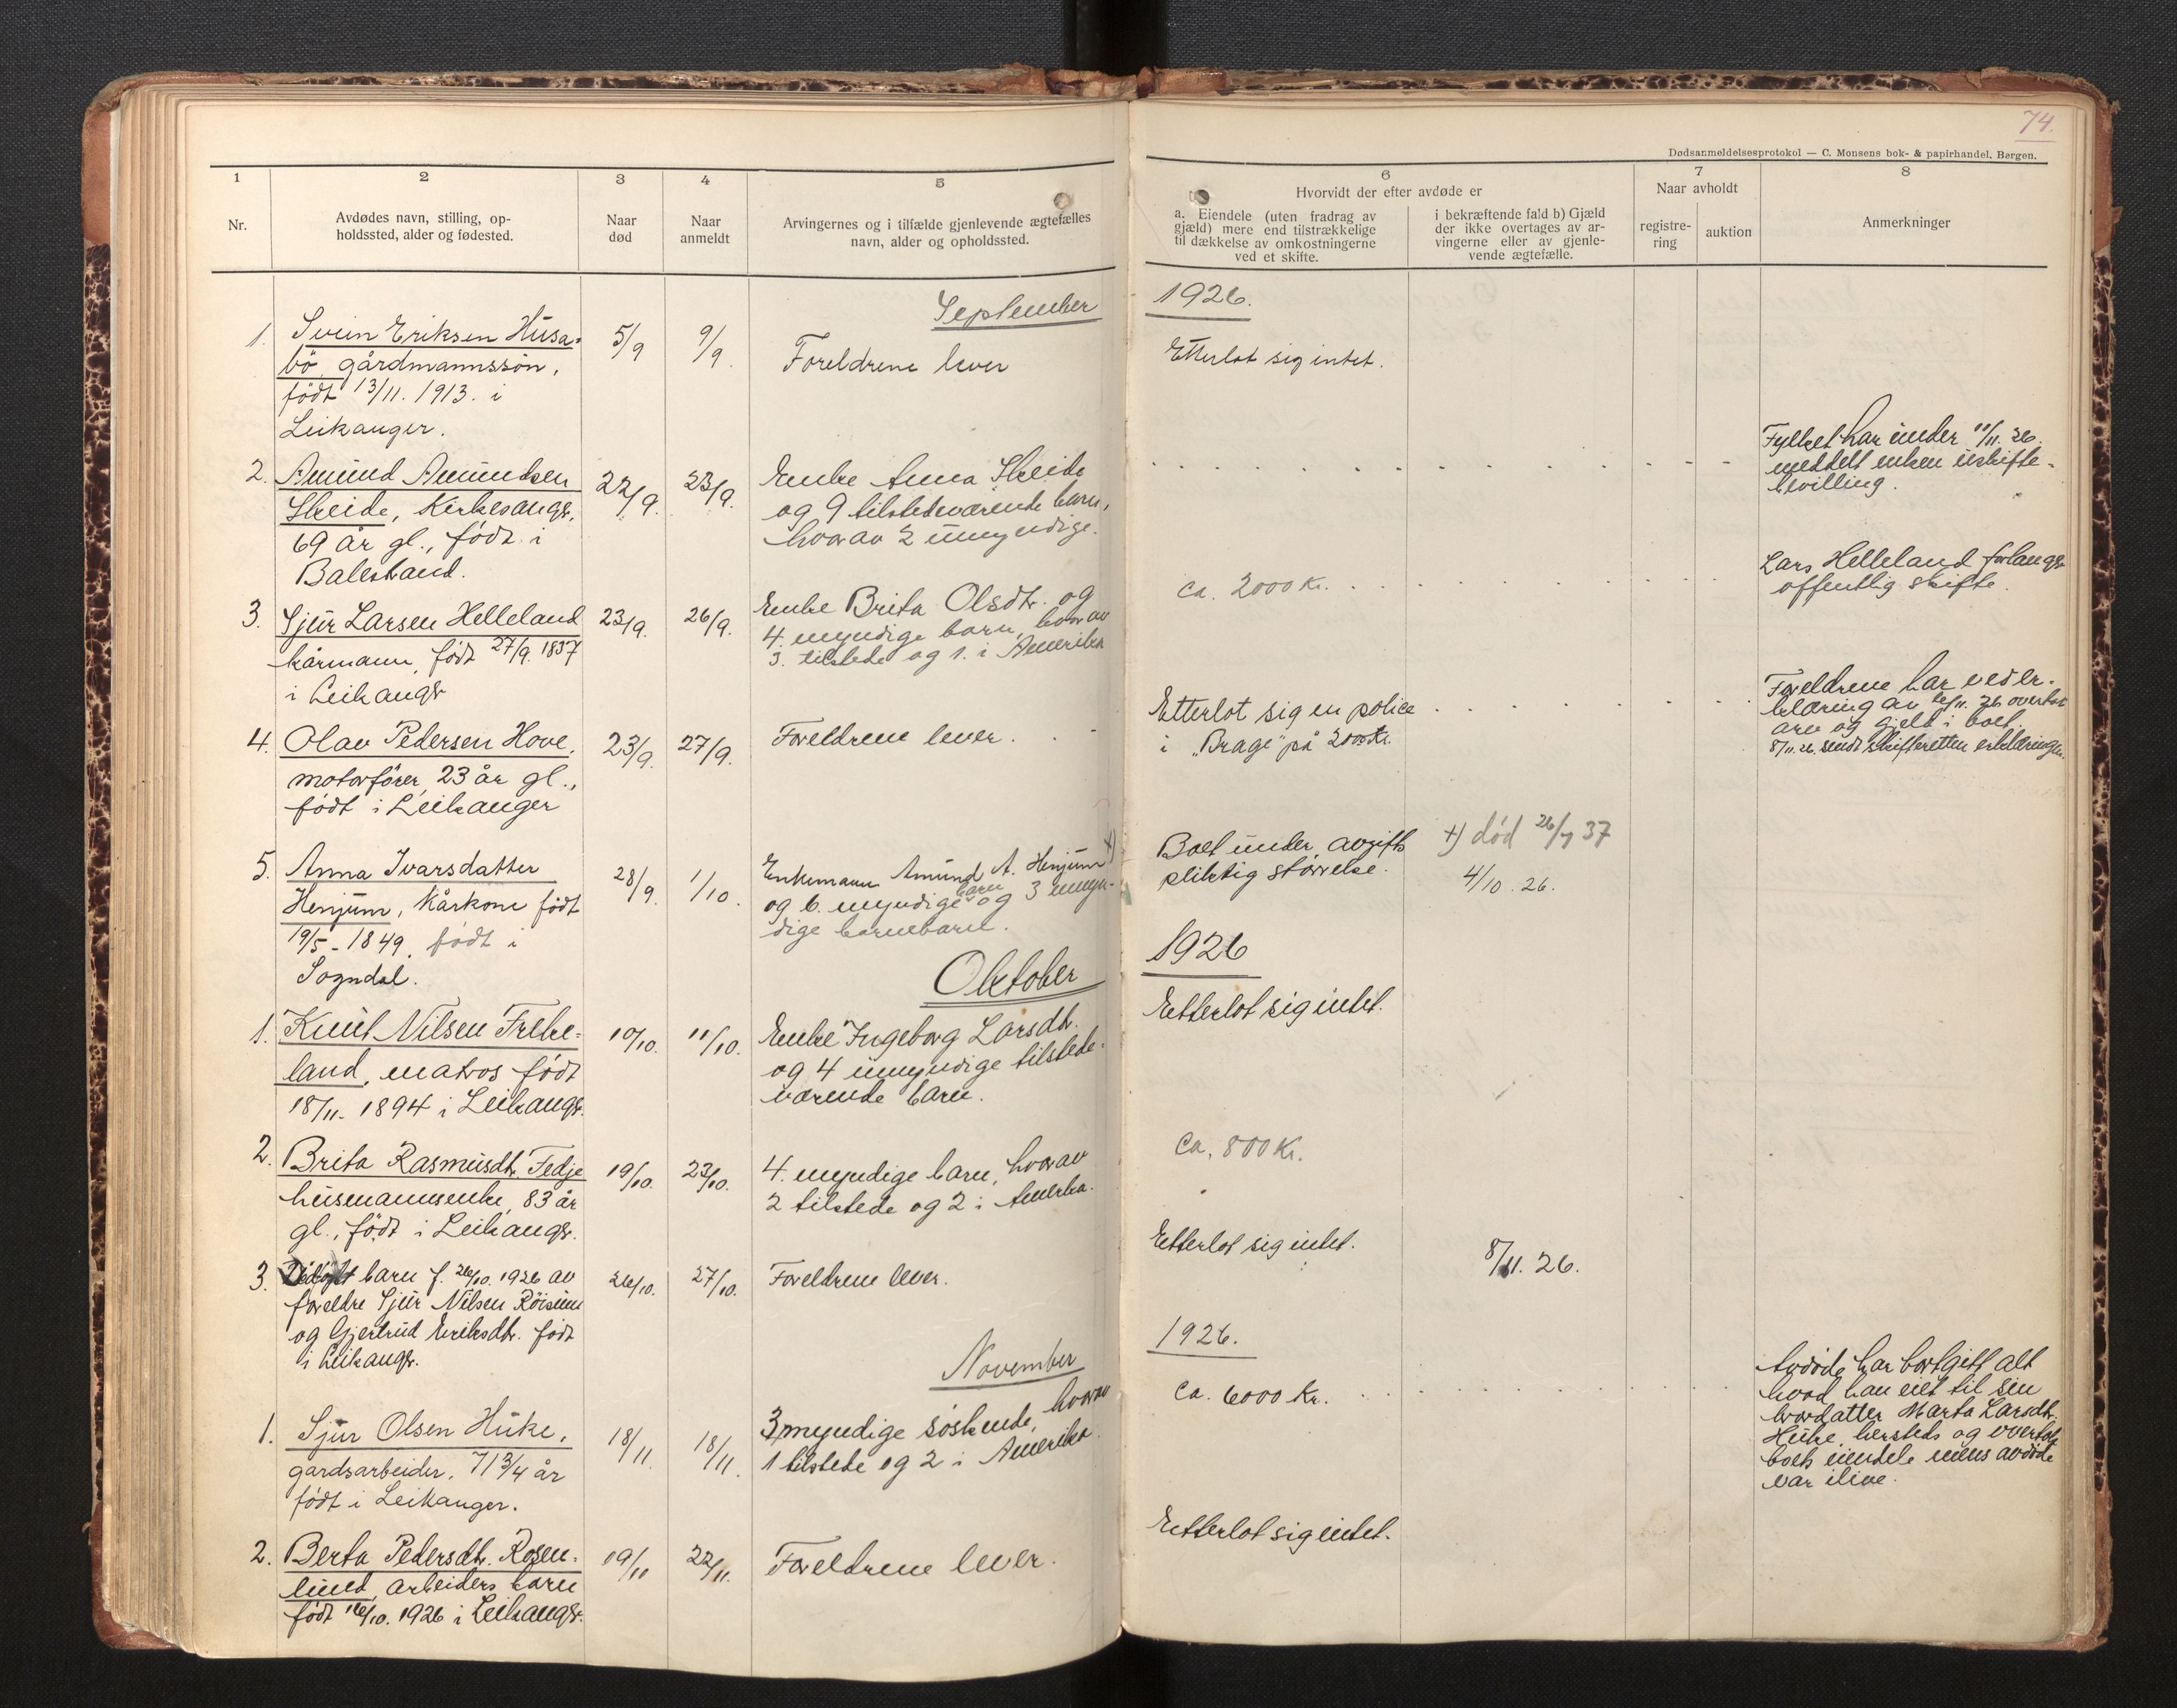 74.
Dødsanmeldelsesprotokol — C. Monsens bok- & papirhandel, Bergen.
1
2
3
4
5
6
7
8
Nr.
Avdødes navn, stilling, op-
holdssted, alder og fødested.
Naar
død
Naar
anmeldt
Arvingernes og i tilfælde gjenlevende ægtefælles
navn, alder og opholdssted.
Hvorvidt der efter avdøde er
a. Eiendele (uten fradrag av
gjæld) mere end tilstrækkelige
til dækkelse av omkostningerne
ved et skifte.
i bekræftende fald b) Gjæld
der ikke overtages av ar-
vingerne eller av gjenle-
vende ægtefælle.
Naar avholdt
registre-
ring
auktion
Anmerkninger
September 1926.
1.
Svein Eriksen Húsa-
bö, gårdmannssön,
födt 13/11. 1913. i
Leikanger.
5/9
9/9.
Foreldrene lever
Etterlot sig intet.
2.
Amúnd Amúndsen
Skeide, Kirkesanger,
69 år gl., födt i
Balestrand.
22/9.
23/9.
Enke Anna Skeide
og 9 tilstedeværende barn,
hvorav 2 úmyndige.
Fylket har únder 11/11. 26.
meddelt enken úskifte-
bevilling.
3.
Sjúr Larsen Helleland
kårmann, födt 27/9. 1837
i Leikanger
23/9.
26/9.
Enke Brita Olsdtr. og
4. myndige barn, hvorav
3. tilstede og 1. i Amerika
ca. 2000 Kr.
Lars Helleland forlanger
offentlig skifte.
4.
Olav Pedersen Hove,
motorförer, 23 år gl.,
födt i Leikanger
23/9.
27/9.
Foreldrene lever.
Etterlot sig en police
i "Brage" på 2000 Kr.
Foreldrene har ved er-
klæring av 26/11. 26 overtat
arv og gjeld i boet.
8/11. 26. sendt skifteretten erklæringen.
5.
Anna Ivarsdatter
Henjúm, Kårkone födt
19/5 - 1849, födt i
Sogndal.
28/9.
1/10.
Enkemann Amúnd A. Henjúm +)
og 6. myndige barn og 3 úmyn-
dige barnebarn.
Boet únder avgifts
pliktig störrelse.
+) död 26/7 37
4/10. 26.
Oktober 1926
1.
Knút Nilsen Freke-
land, matros födt
18/11. 1894 i Leikanger.
10/10.
11/10.
Enke Ingeborg Larsdtr.
og 4 úmyndige tilstede-
værende barn.
Etterlot sig intet.
2.
Brita Rasmúsdtr. Fedje
húsmannsenke, 83 år
gl., födt i Leikanger.
19/10.
23/10.
4. myndige barn, hvorav
2 tilstede og 2 i Amerika.
Ca. 800 Kr.
3.
barn f. 26/10. 1926 av
foreldre Sjúr Nilsen Röisúm
og Gjertrúd Eriksdtr. födt
i Leikanger.
26/10.
27/10.
Foreldrene lever.
Etterlot sig intet.
8/11. 26.
November 1926.
1.
Sjúr Olsen Húke,
gardsarbeider, 71 3/4 år
födt i Leikanger.
18/11
18/11.
3 myndige söskende, hvorav
1 tilstede og 2 i Amerika.
Ca. 6000 Kr.
Avdöde har bortgitt alt
hvad han eiet til sin
brordatter Marta Larsdtr.
Húke, hersteds og overtok
boets eiendele mens avdöde
var ilive.
2.
Berta Pedersdtr. Rosen-
lúnd, arbeiders barn
födt 16/10. 1926 i Leikanger.
19/11
22/11.
Foreldrene lever.
Etterlot sig intet.